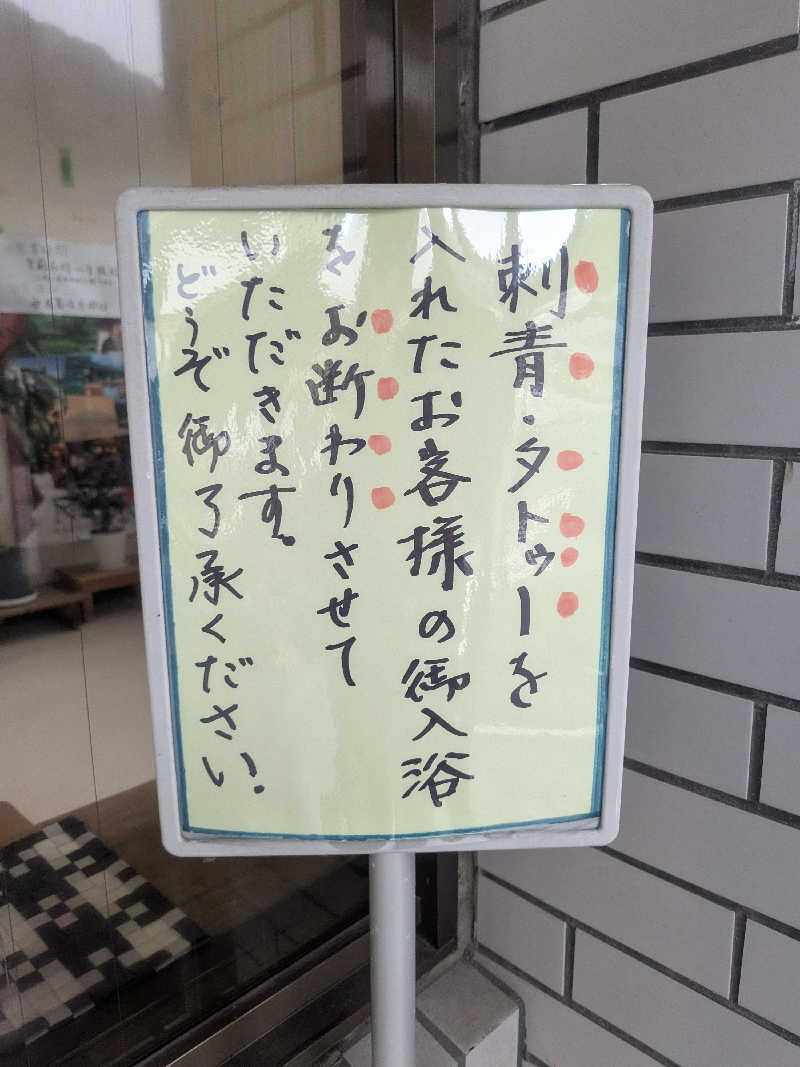 刺青・タトゥーを
入れたお客様の御入浴
を お断わりさせて
いただきます。
どうぞ御了承ください。